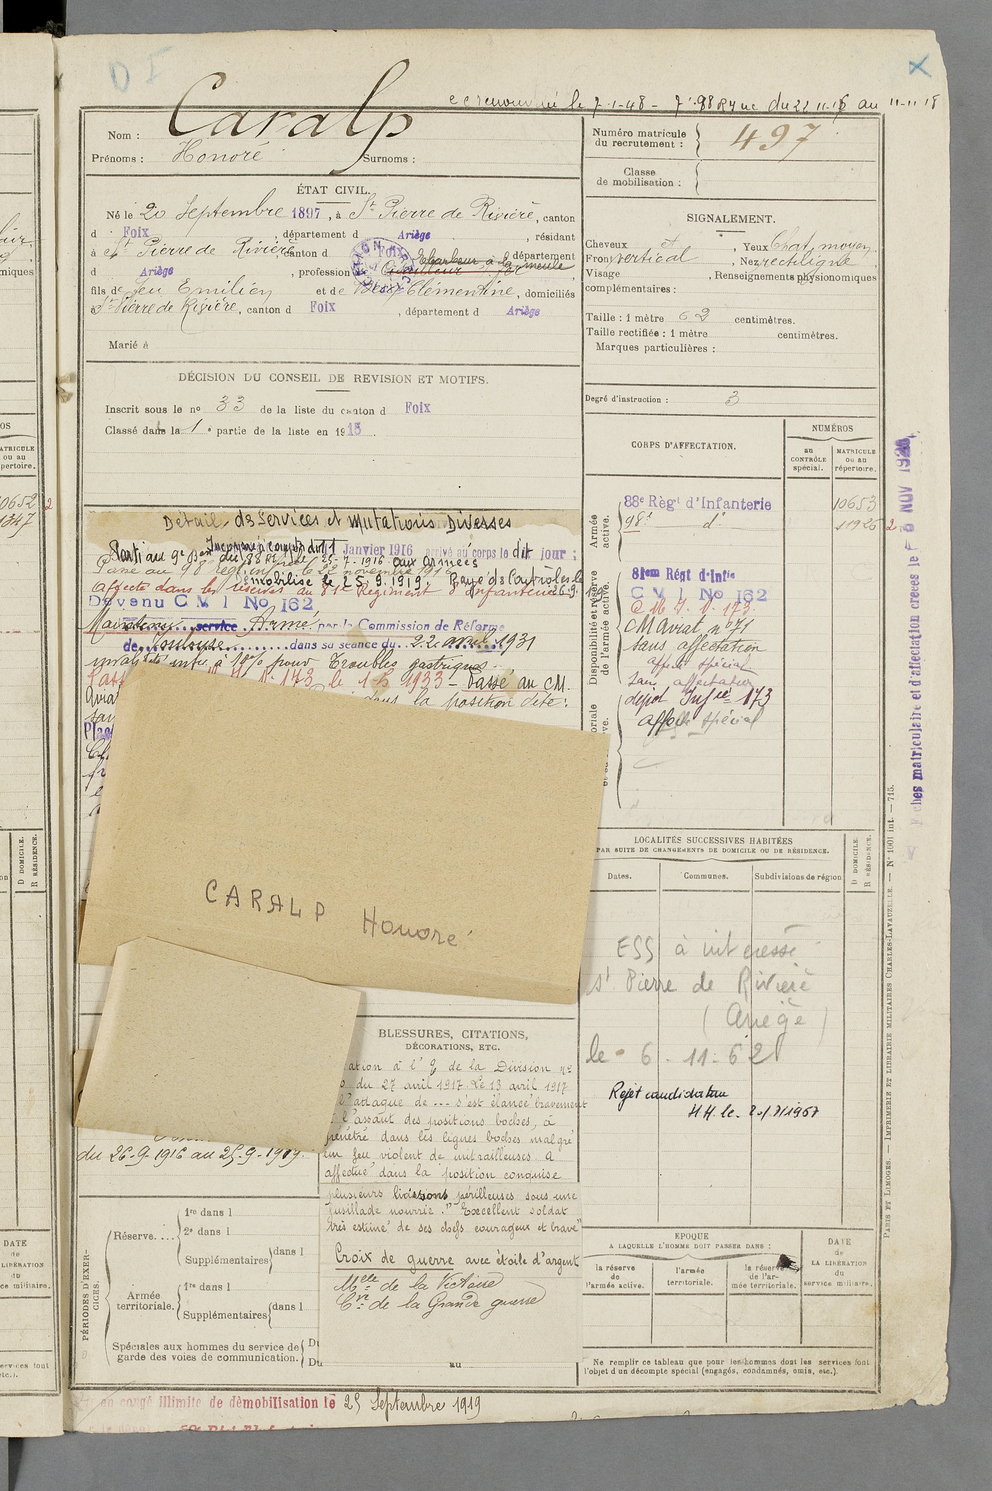 D I
le 7-1-48 - 98 R.I. du 22 11-16 au 11-11 18
Nom : Caralp
Prénoms : Honoré Surnoms :
Numéro matricule du recrutement : 497
Classe de mobilisation :
ÉTAT CIVIL.
Né le 20 Septembre 1897, à St Pierre de Rivière, canton
d Foix, département d Ariège, résidant
à St Pierre de Rivière, canton d Foix, département
d Ariège, profession d Ebarbeur à la meule
fils de feu Emilien et de Clémentine, domiciliés
à St Pierre de Rivière, canton d Foix, département d Ariège
Marié à
DÉCISION DU CONSEIL DE REVISION ET MOTIFS.
Inscrit sous le no 33 de la liste du canton d Foix
Classé dans la 1e partie de la liste en 1915
SIGNALEMENT.
Cheveux, Yeux Chat. moyen
Front vertical, Nez rectiligne
Visage, Renseignements physionomiques
complémentaires :
Taille : 1 mètre 62 centimètres.
Taille rectifiée : 1 mètre centimètres.
Marques particulières :
Degré d'instruction : 3
CORPS D'AFFECTATION.
NUMÉROS
au CONTRÔLE spécial.
MATRICULE ou au répertoire.
Armée active.
88e Régt d'Infanterie 10653
98e d° 11926
Disponibilité et réserve de l'armée active.
81em Régt d'Infie
C V I No 162
C M I. N. 173
CM Aviat. n° 71
sans affectation
affect. spécial
sans affectation
dépot Infie 173
affecté spécial
Détail des Services et Mutations Diverses
Incorporé à compter du 11 Janvier 1916 arrivé au corps le dit jour :
Passé au 98e régiment le 22 novembre 1916
Démobilisé le 25.9.1919. Rayé des Contrôles le 26.9.
affecté dans les réserves au 81e Régiment d'Infanterie
Devenu C V I No 162
Maintenu service Armé par la Commission de Réforme
de Toulouse dans sa séance du 22 avril 1931
invalidité inf. à 10% pour Troubles gastriques
173 le 1-5 1933 - Passé au CM.
dans la position dite :
CARALP Honoré
LOCALITÉS SUCCESSIVES HABITÉES
PAR SUITE DE CHANGEMENTS DE DOMICILE OU DE RÉSIDENCE.
Dates. Communes. Subdivisions de région
D DOMICILE.
R RÉSIDENCE.
ESS à intéressé
St Pierre de Rivière
(Ariège)
le 6-11-62
Rejet candidature
M.H. le 20/7/1967
du 26-9-1916 au 25-9-1919.
BLESSURES, CITATIONS,
DÉCORATIONS, ETC.
ation à l'O de la Division no
du 27 avril 1917. Le 13 avril 1917
l'attaque de --- s'est élancé bravement
à l'assaut des positions boches, a
pénétré dans les lignes boches malgré
un feu violent de mitrailleuses. a
effectué dans la position conquise
plusieurs liaisons périlleuses sous une
fusillade nourrie." Excellent soldat
très estimé de ses chefs courageux et brave"
Croix de guerre avec étoile d'argent
Mlle de la Victoire
Cve de la Grande guerre
PÉRIODES D'EXERCICES.
Réserve....
1re dans l
2e dans l
Supplémentaires dans l
Armée territoriale.
1re dans l
Supplémentaires dans l
Spéciales aux hommes du service de
garde des voies de communication.
Du
Du au
EPOQUE
A LAQUELLE L'HOMME DOIT PASSER DANS :
DATE de LA LIBÉRATION du service militaire.
la réserve de l'armée active.
l'armée territoriale.
la réserve de l'armée territoriale.
Ne remplir ce tableau que pour les hommes dont les services font
l'objet d'un décompte spécial (engagés, condamnés, omis, etc.).
en congé illimité de démobilisation le 25 Septembre 1919
Fiches matriculaire et d'affectation créées le
PARIS ET LIMOGES. — IMPRIMERIE ET LIBRAIRIE MILITAIRES CHARLES-LAVAUZELLE. — N° 1001 int. — 715.